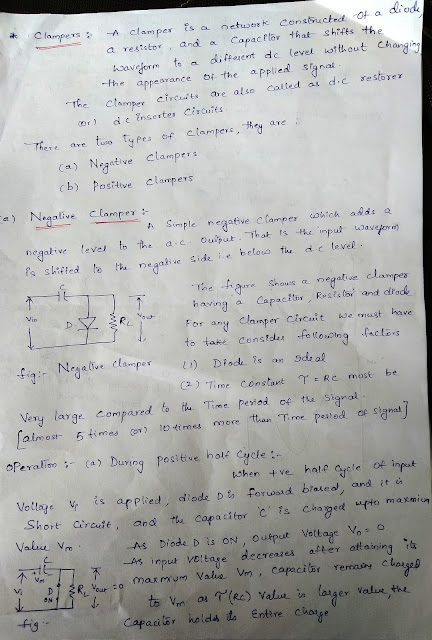 * Clampers :- A clamper is a network constructed of a diode
a resistor, and a capacitor that shifts the
waveform to a different dc level without changing
the appearance of the applied signal.
The clamper circuits are also called as d.c restorer
(or) d c inserter circuits
There are two types of clampers, they are :
(a) Negative clampers
(b) Positive clampers
(a) Negative clamper :-
A simple negative clamper which adds a
negative level to the a.c. output. That is the input waveform
is shifted to the negative side i.e below the d.c level.
The figure shows a negative clamper
having a Capacitor, Resistor and diode
For any clamper circuit we must have
to take consider following factors
(1) Diode is an Ideal
(2) Time Constant τ = RC must be
C
Vin
D
RL
Vout
fig:- Negative clamper
Very large compared to the Time period of the signal.
[almost 5 times (or) 10 times more than Time period of signal]
Operation :- (a) During positive half cycle :-
When +ve half cycle of input
Voltage Vi is applied, diode D is forward biased, and it is
Short circuit, and the capacitor 'C' is charged upto maximum
Value Vm. -As Diode D is ON, output voltage Vo = 0
-As input voltage decreases after attaining its
maxmium value Vm, capacitor remains charged
to Vm as τ (RC) value is larger value, the
Capacitor holds its Entire charge
C
Vm
Vi
D
ON
RL
Vout = 0
fig :-